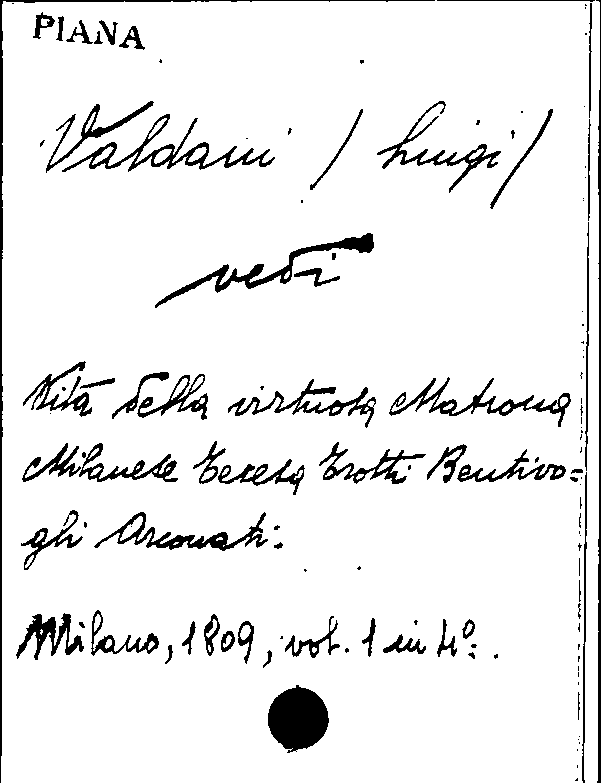 PIANA
Valdani / Luigi /
vedi
Vita della virtuosa Matrona
Milanese Teresa Trotti Bentivo=
gli Arconati.
Milano, 1809, vol. 1 in 4º.